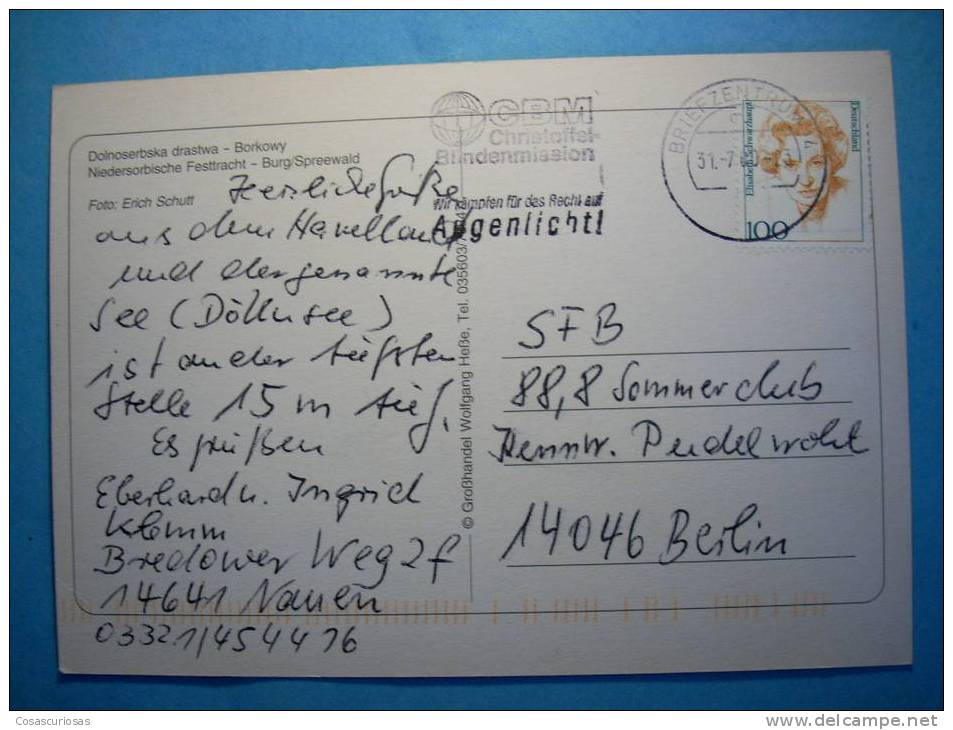 Dolnoserbska drastwa – Borkowy
Niedersorbische Festtracht – Burg/Spreewald
Foto: Erich Schutt
Herzliche Grüße
aus dem Havelland
und der genannte
See (Döllnsee)
ist an der tiefsten
Stelle 15 m tief.
Es grüßen
Eberhard u. Ingrid
Klemm
Bredower Weg 2f
14641 Nauen
03321/454416
© Großhandel Wolfgang Heße, Tel. 035603/
CBM
Christoffel-
Blindenmission
Wir kämpfen für das Recht auf
Augenlicht!
BRIEFZENTRUM
31.-7
Elisabeth Schwarzhaupt
Deutschland
100
SFB
88,8 Sommerclub
Kennw. Pudelwohl
14046 Berlin
Cosascuriosas
www.delcampe.net